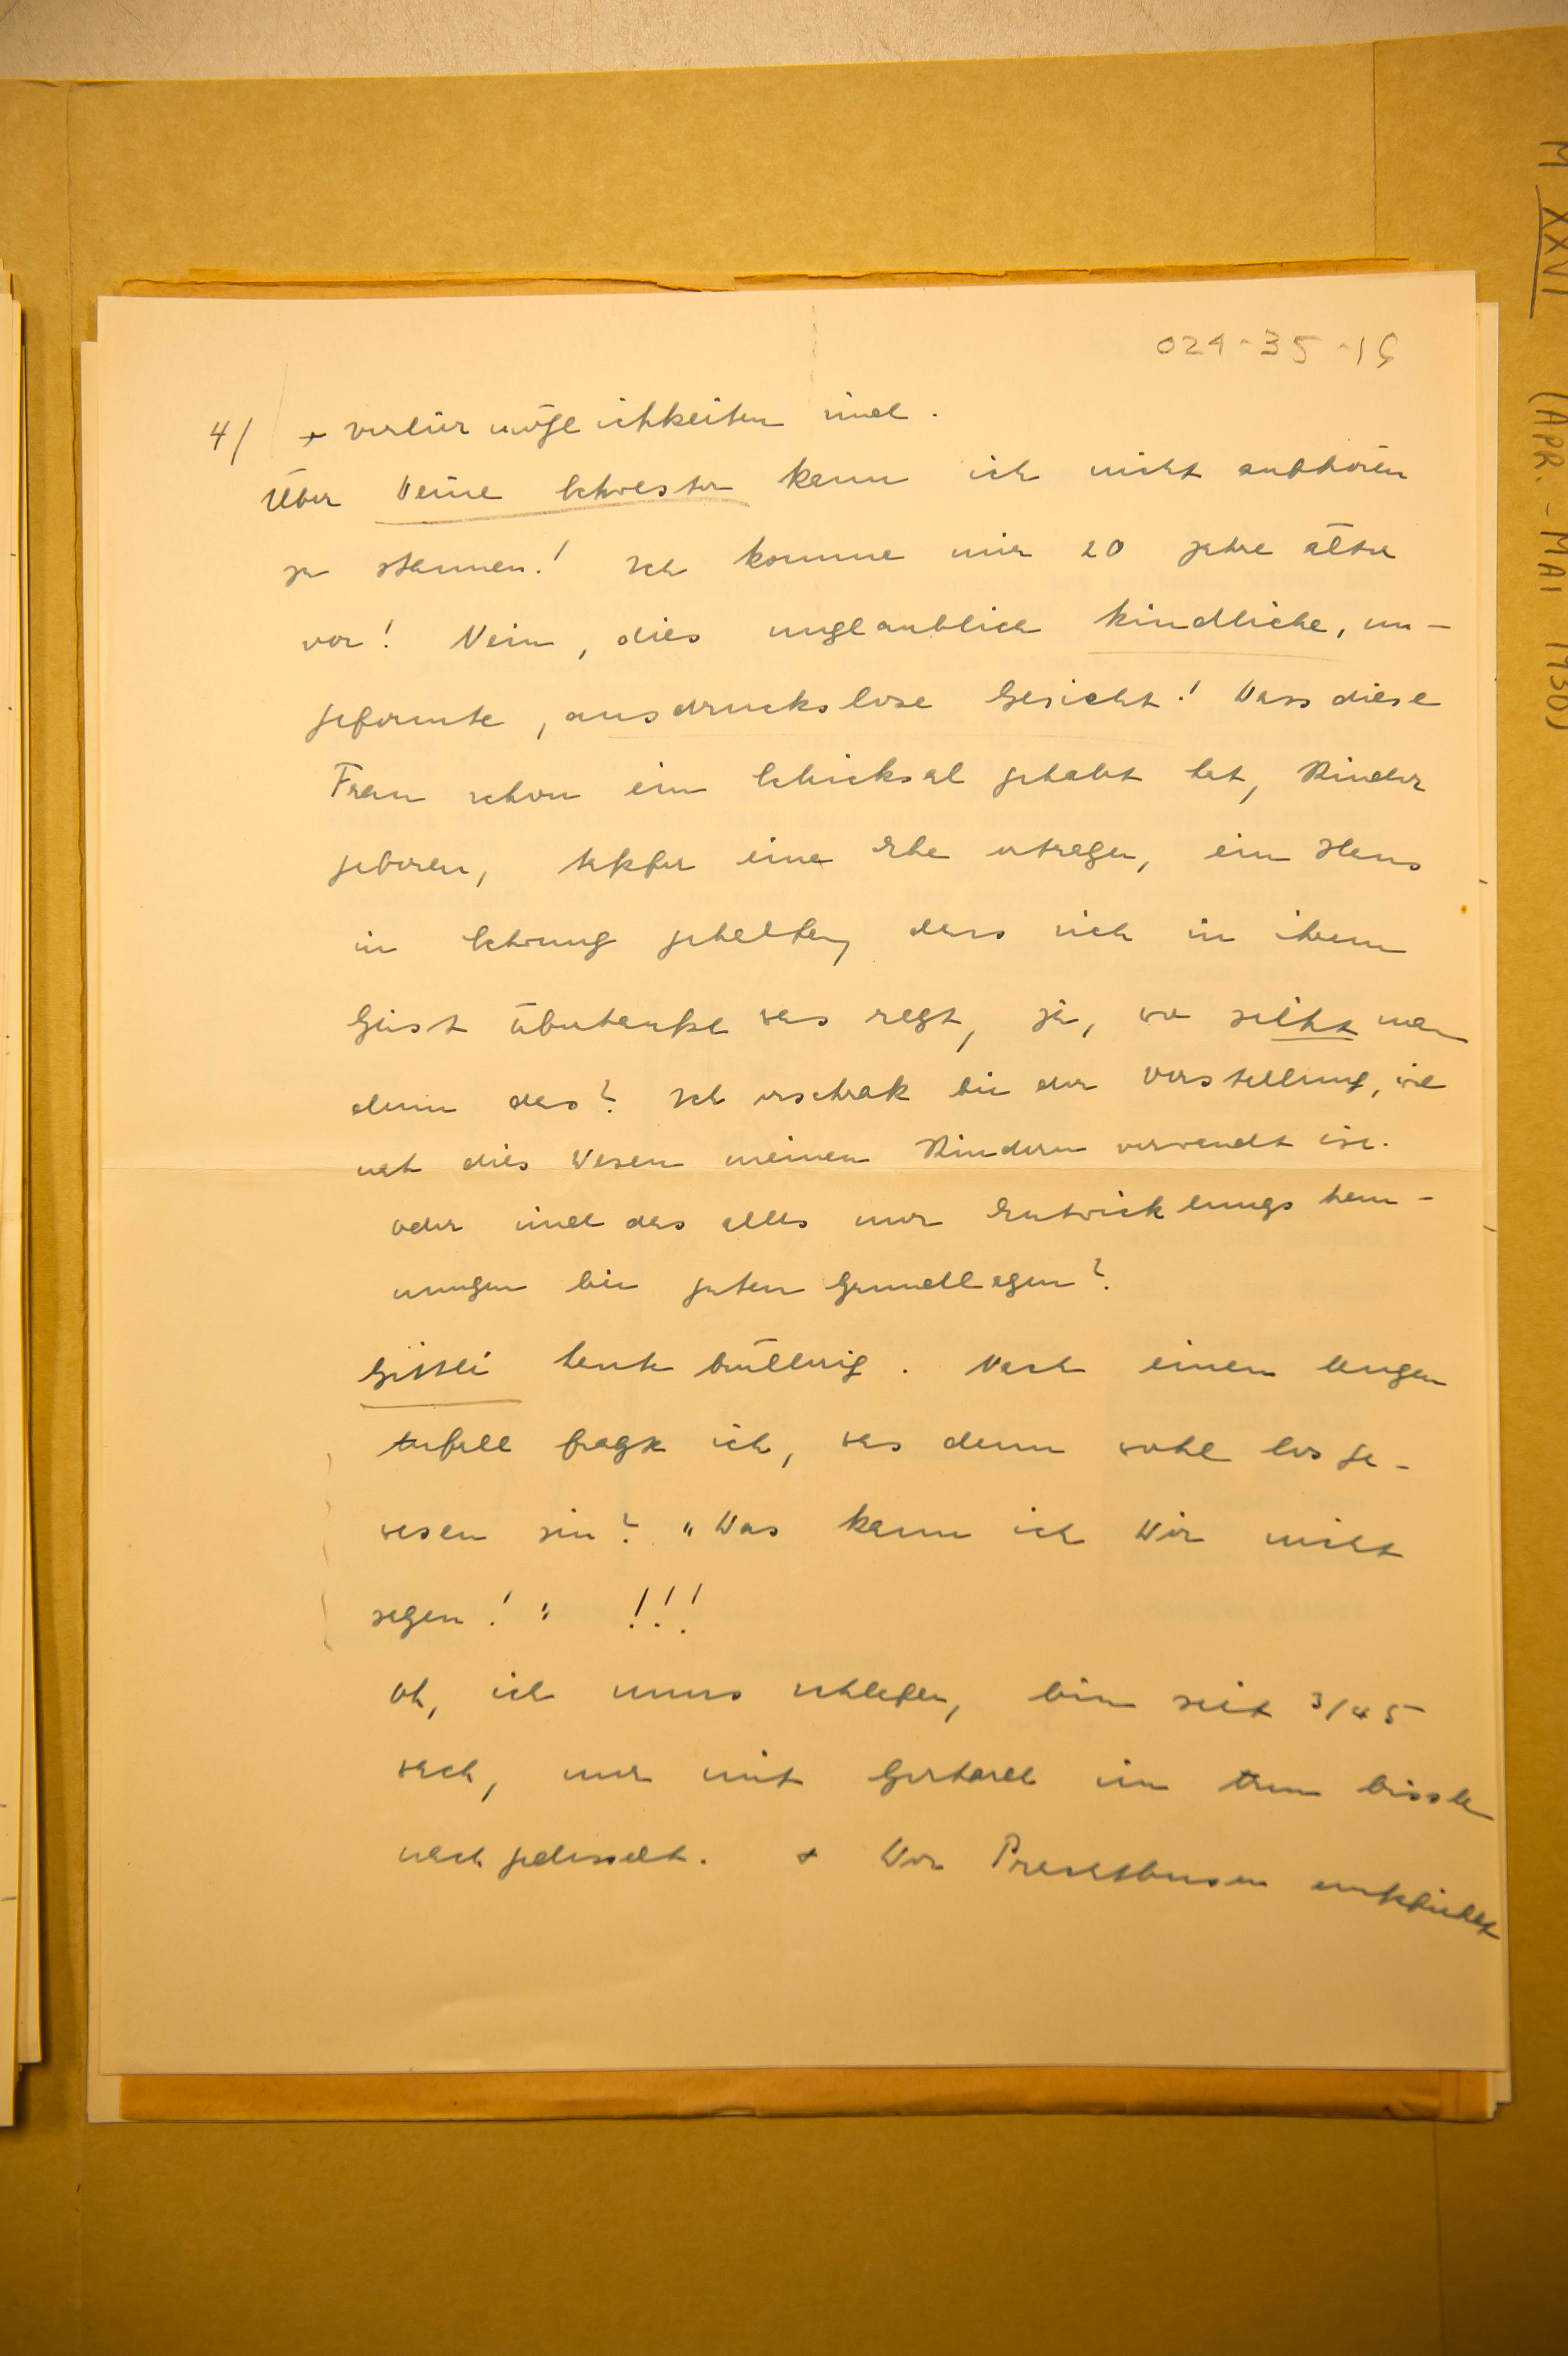 M XXVI (APR. - MAI 1930)
024-35-16
4/ + verliermöglichkeiten sind.
Über Deine Schwester kann ich nicht aufhören
zu staunen! Ich komme mir 20 Jahre älter
vor! Nein, dies unglaublich kindliche, un-
geformte, ausdruckslose Gesicht! Dass diese
Frau schon ein Schicksal gehabt hat, Kinder
geboren, tapfer eine Ehe ertragen, ein Haus
in Schwung gehalten, dass sich in ihrem
Geist überhaupt was regt, ja, wo sieht man
denn das? Ich erschrak bei der Vorstellung, wie
nah dies Wesen meinen Kindern verwandt ist.
oder sind das alles nur Entwicklungs hem-
mungen bei guten Grundlagen?
heute brüllerig. Nach einem langen
Anfall fragte ich, was denn wohl los ge-
wesen sei? "Das kann ich Dir nicht
sagen!" !!!
Oh, ich muss schlafen, bin seit 3/4 5
wach, nur mit Gerhard im Arm bissle
nach gedusselt. + Der Prachtbusen empfiehlt